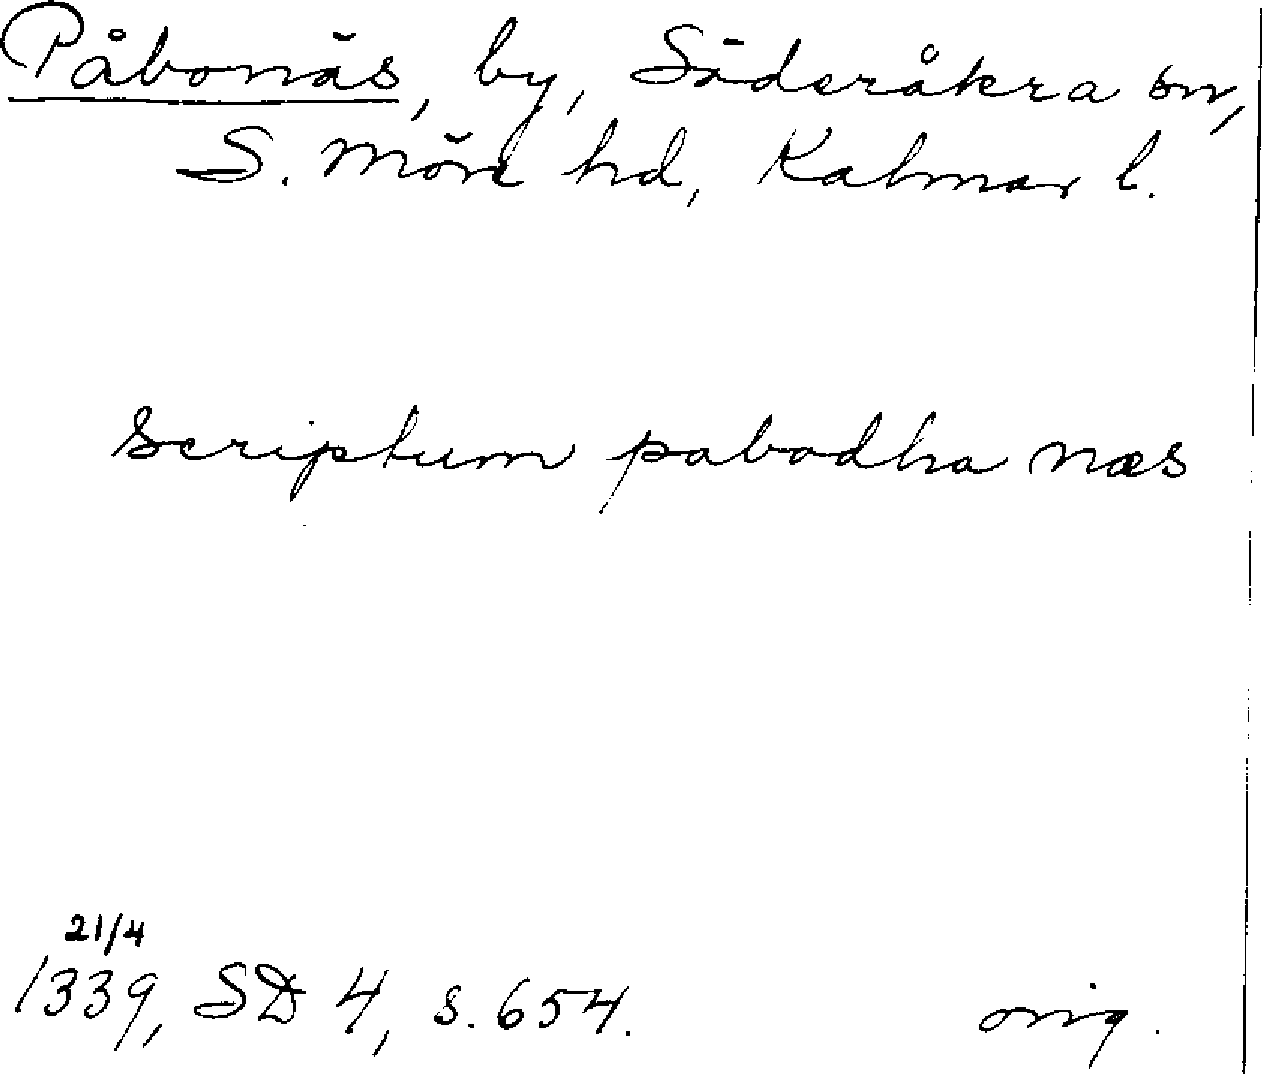 Påbonäs, by, Söderåkra sn,
S. Möre hd, Kalmar l.
scriptum pabodha næs
21/4
1339, SD 4, s. 654. orig.